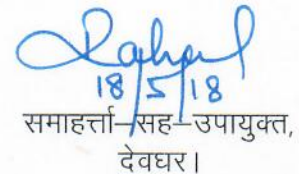 Rahul
18/5/18
समाहर्त्ता–सह–उपायुक्त,
देवघर।